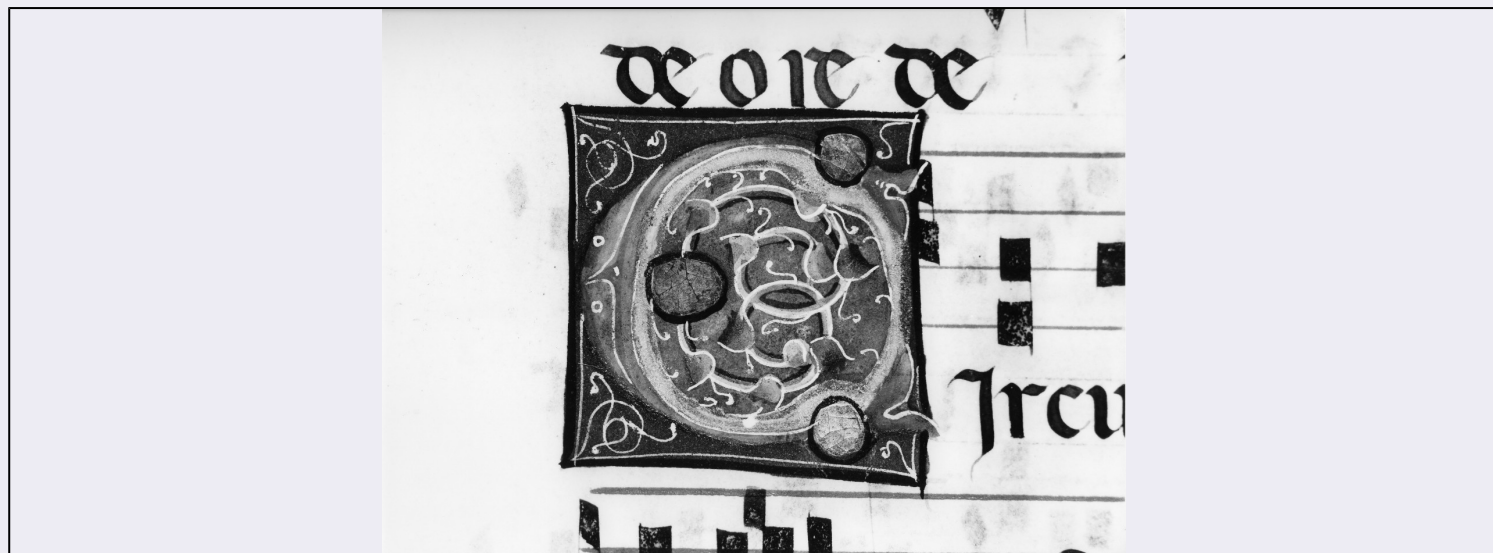 de ore de
CIrcu